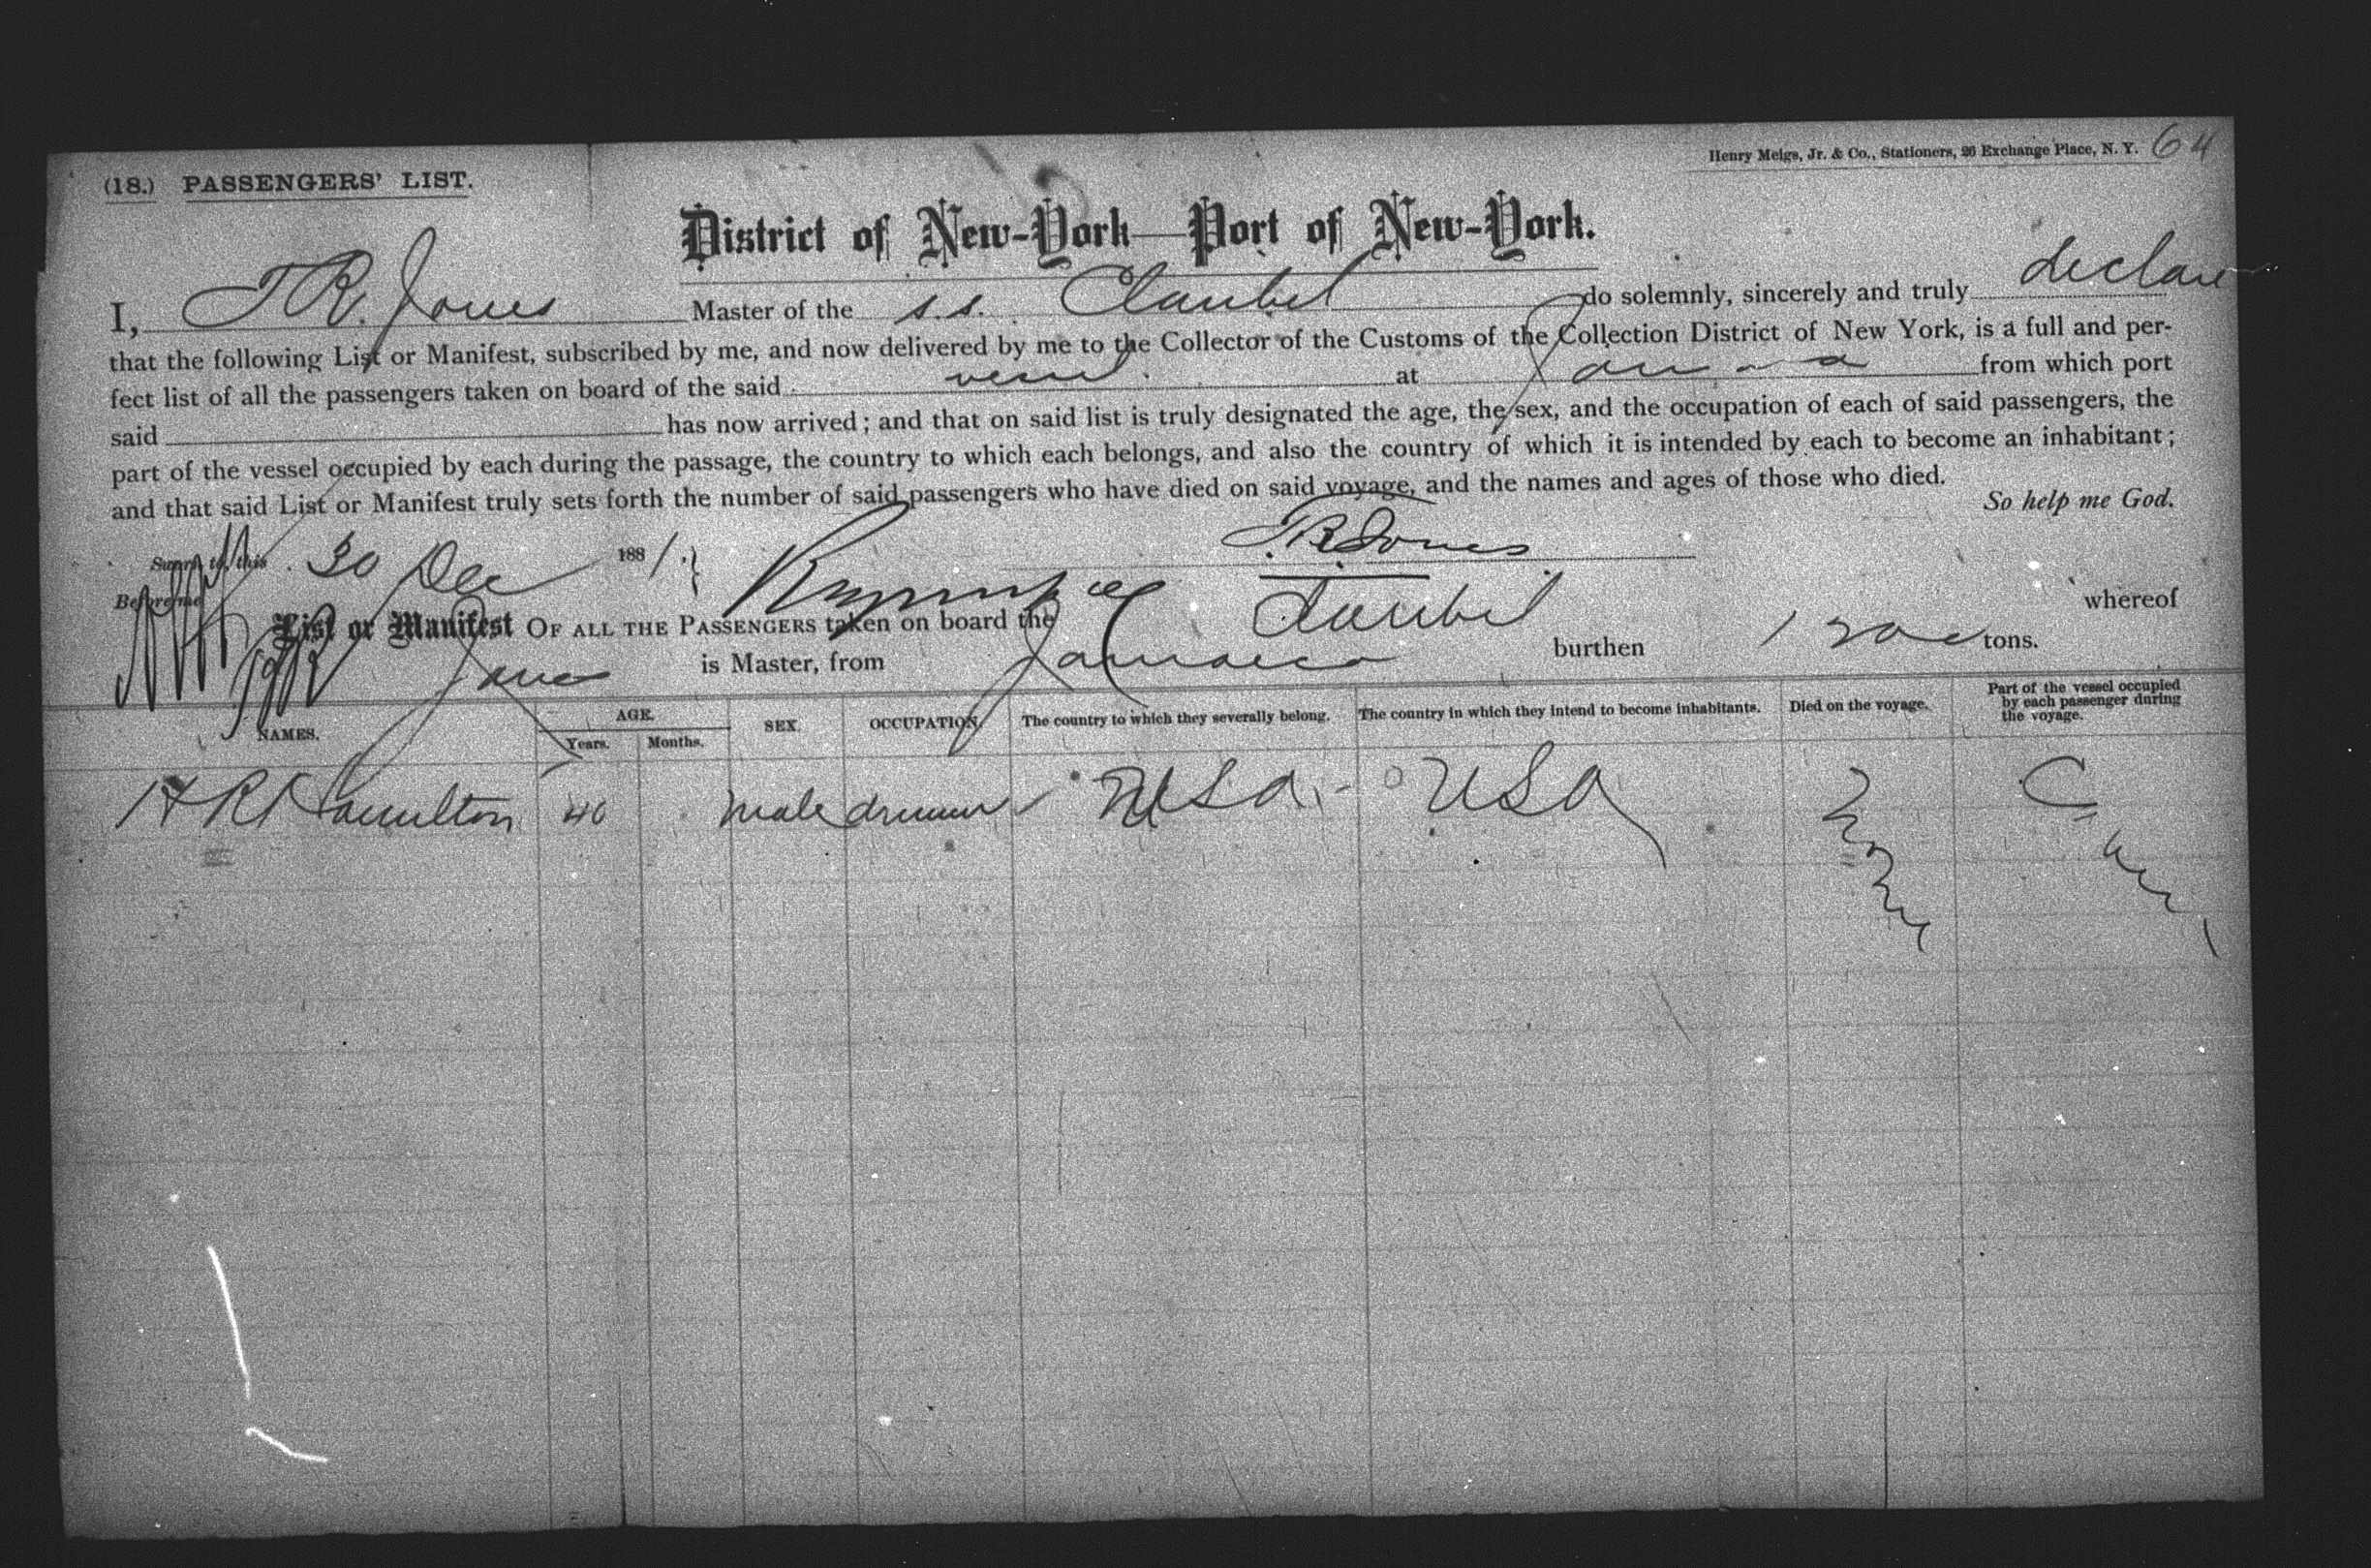 Henry Meigs, Jr. & Co., Stationers, 26 Exchange Place, N. Y. 64
(18.) PASSENGERS' LIST.
District of New-York—Port of New-York.
I, T R. Jones Master of the s.s. do solemnly, sincerely and truly declare
that the following List or Manifest, subscribed by me, and now delivered by me to the Collector of the Customs of the Collection District of New York, is a full and per-
fect list of all the passengers taken on board of the said vessel at from which port
said has now arrived; and that on said list is truly designated the age, the sex, and the occupation of each of said passengers, the
part of the vessel occupied by each during the passage, the country to which each belongs, and also the country of which it is intended by each to become an inhabitant;
and that said List or Manifest truly sets forth the number of said passengers who have died on said voyage, and the names and ages of those who died.
So help me God.
Sworn to this 30 Dec 1881. T.R. Jones
Before me
List or Manifest OF ALL THE PASSENGERS taken on board the whereof
Jones is Master, from Jamaica burthen tons.
NAMES. AGE. Years. Months. SEX. OCCUPATION. The country to which they severally belong. The country in which they intend to become inhabitants. Died on the voyage. Part of the vessel occupied by each passenger during the voyage.
Hamilton 40 male USA USA None